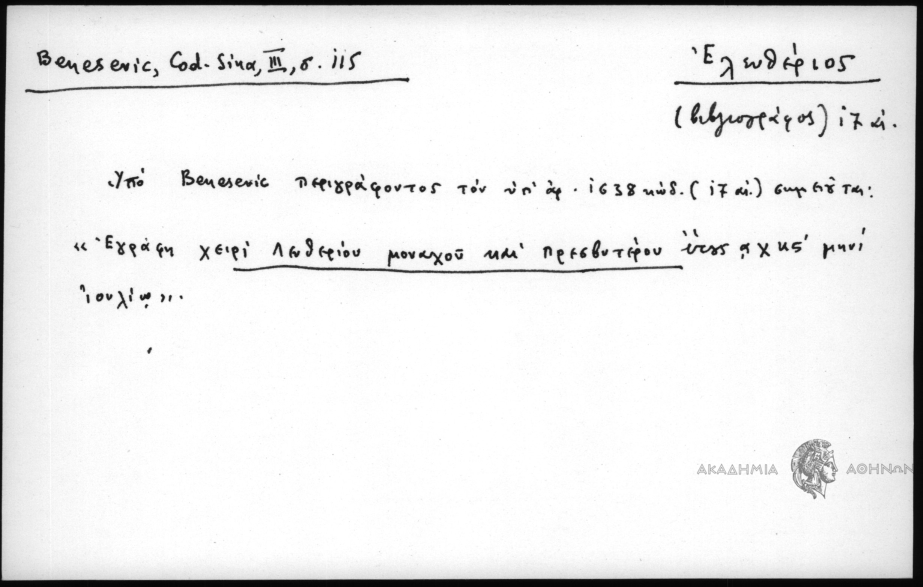 Benesevic, Cod. Sina, III, σ. 115
Ἐλευθέριος
(βιβλιογράφος) 17 αι.
Ὑπό Benesevic περιγράφοντος τόν ὑπ' ἀρ. 1638 κώδ. (17 αι.) σημειοῦται:
« Ἐγράφη χειρί Λευθερίου μοναχοῦ καί πρεσβυτέρου ἔτους αχκς μηνί
Ἰουλίῳ ».
ΑΚΑΔΗΜΙΑ ΑΘΗΝΩΝ